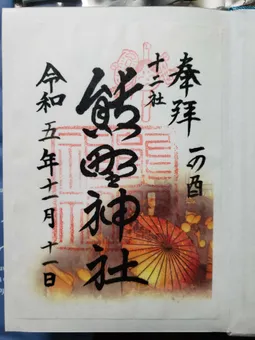 奉拝 一の酉
十二社
熊野神社
令和五年十一月十一日